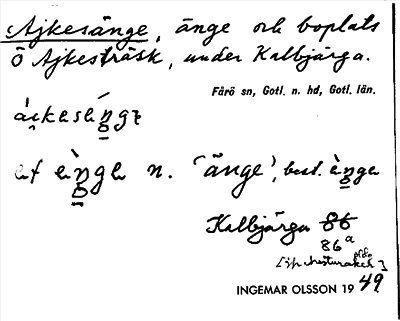 Ajkesänge, änge och boplats
Ö Ajkesträsk, under Kalbjärga.
Fårö sn, Gotl. n. hd, Gotl. län.
n. 'änge', best.
Kalbjärga 86
86a
INGEMAR OLSSON 1949